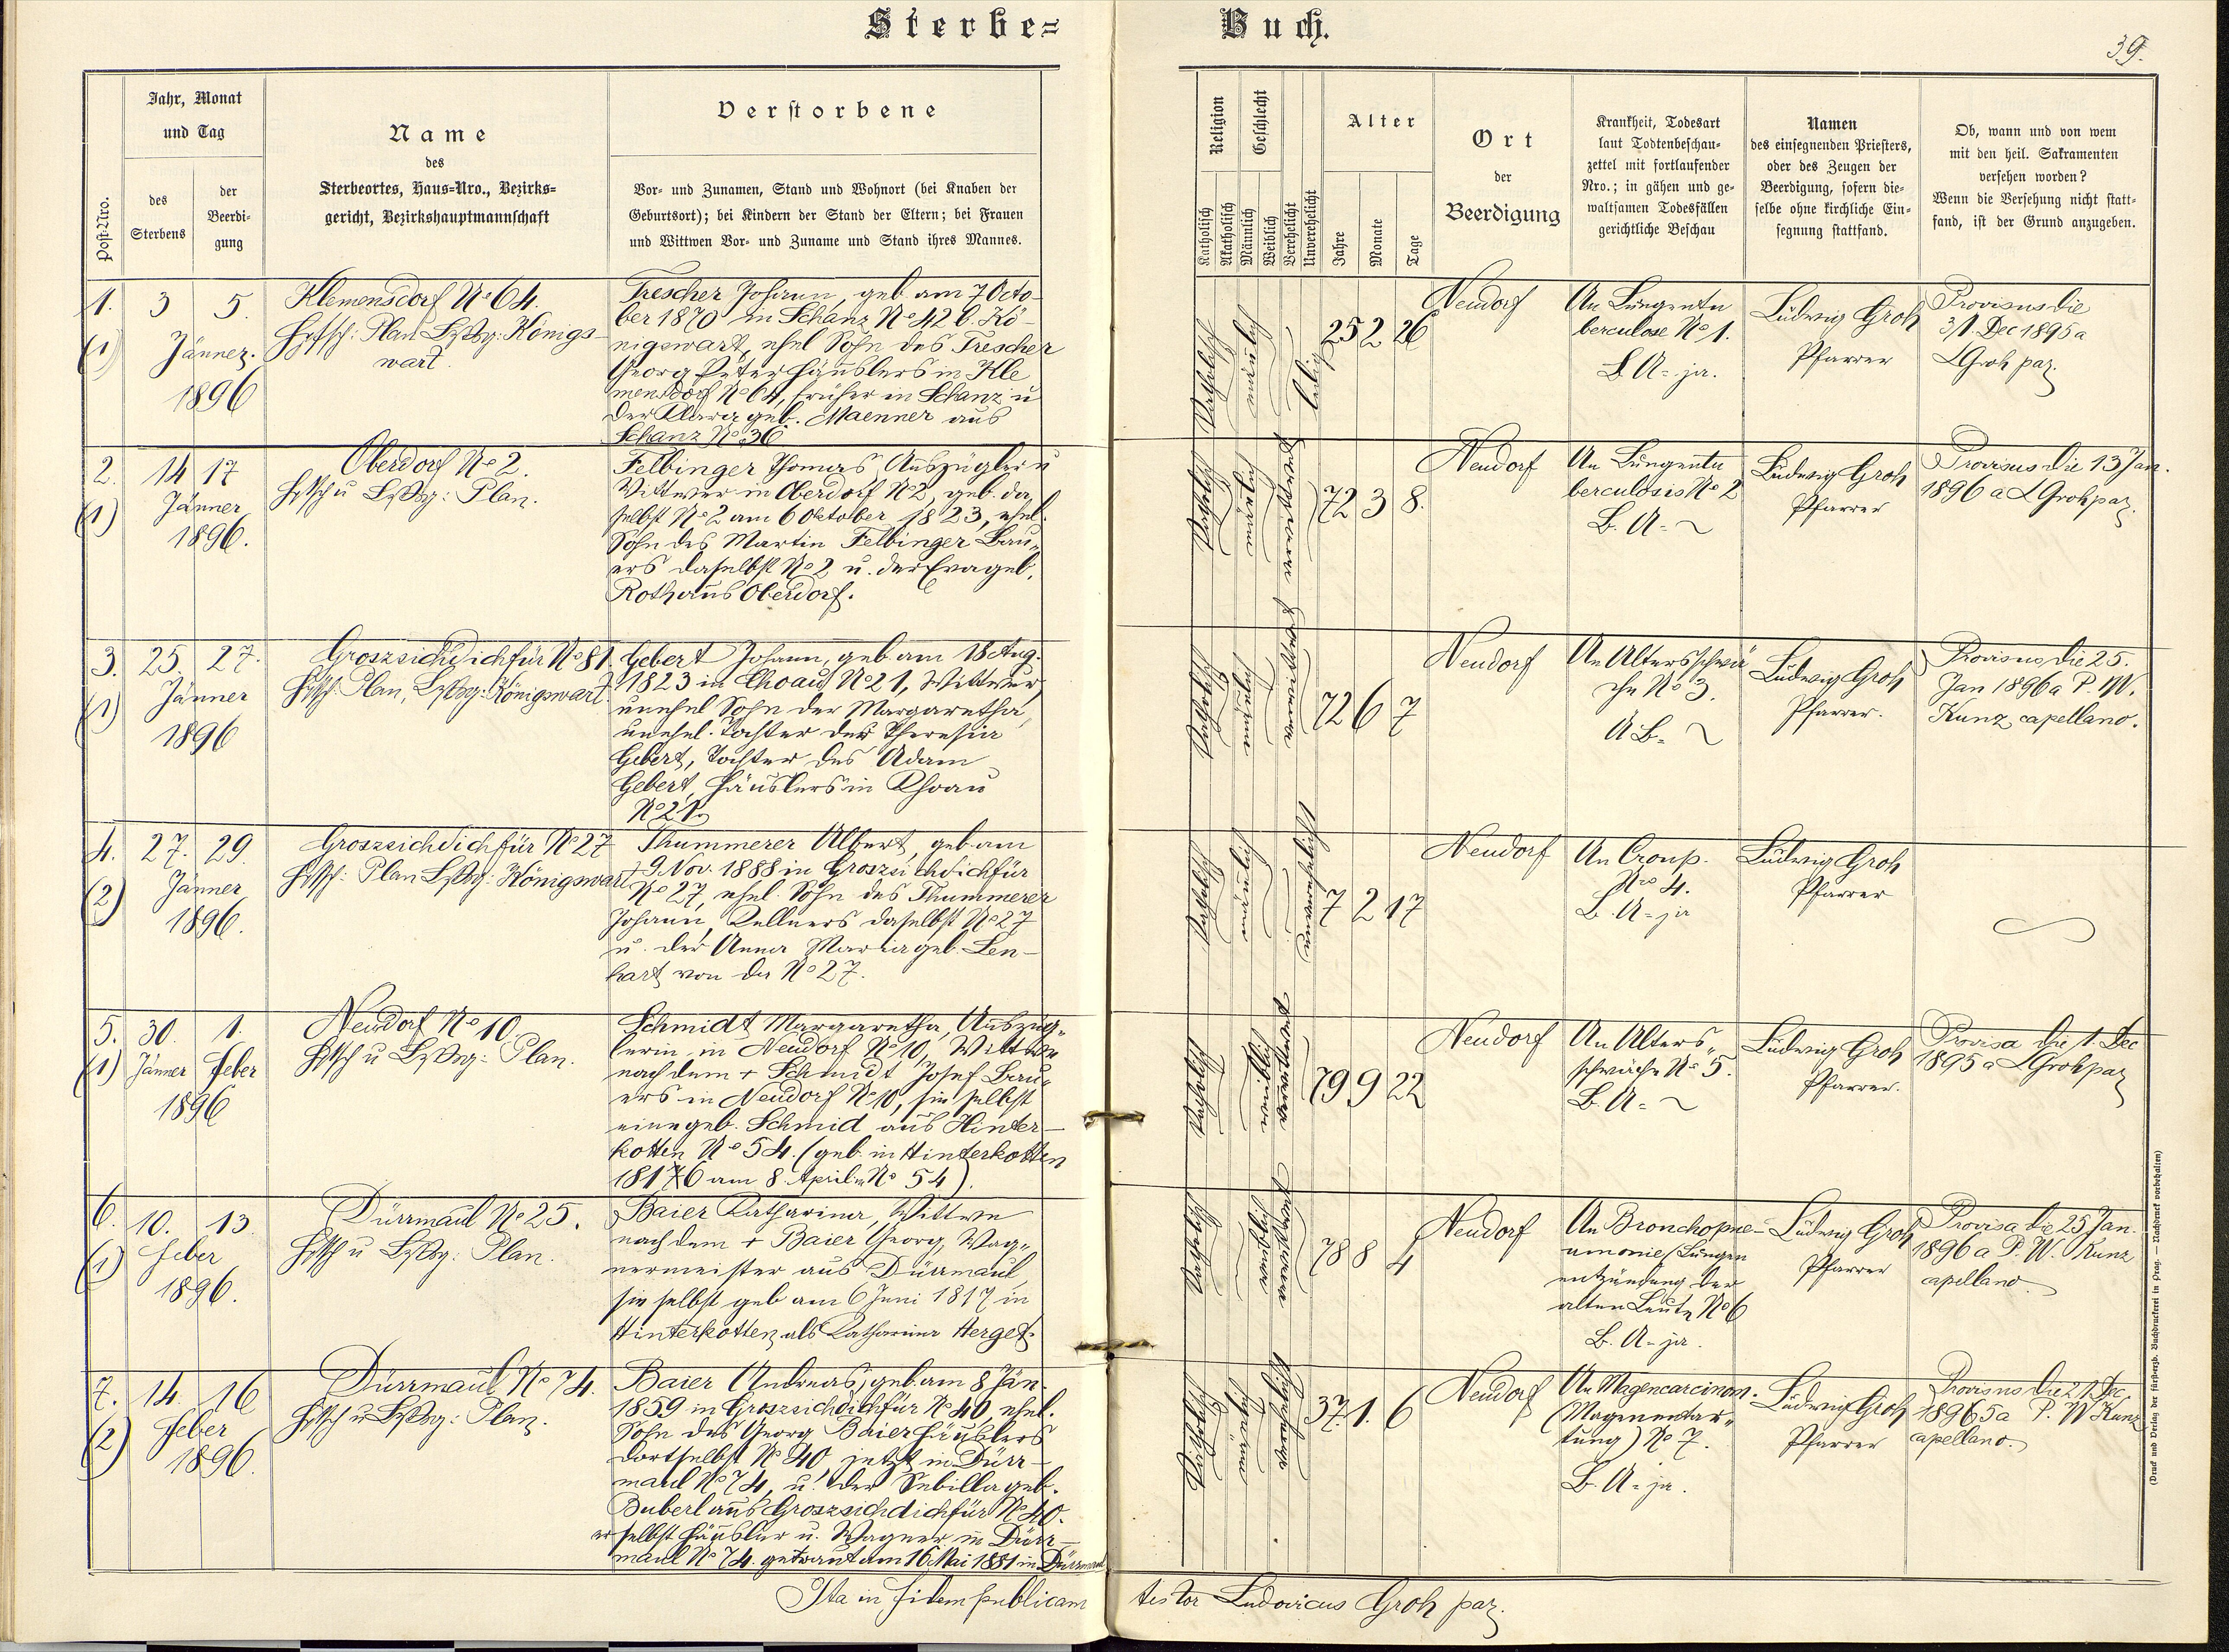 Sterbe=
Buch.
39.
Post-Nro.
Jahr, Monat
und Tag
des
Sterbens
der
Beerdi-
gung
Name
des
Sterbeortes, Haus-Nro., Bezirks=
gericht, Bezirkshauptmannschaft
Verstorbene
Vor- und Zunamen, Stand und Wohnort (bei Knaben der
Geburtsort); bei Kindern der Stand der Eltern; bei Frauen
und Wittwen Vor- und Zuname und Stand ihres Mannes.
Religion
Katholisch
Akatholisch
Geschlecht
Männlich
Weiblich
Verehelicht
Unverehelicht
Alter
Jahre
Monate
Tage
Ort
der
Beerdigung
Krankheit, Todesart
laut Todtenbeschau-
zettel mit fortlaufender
Nro.; in gähen und ge-
waltsamen Todesfällen
gerichtliche Beschau
Namen
des einsegnenden Priesters,
oder des Zeugen der
Beerdigung, sofern die-
selbe ohne kirchliche Ein-
segnung stattfand.
Ob, wann und von wem
mit den heil. Sakramenten
versehen worden?
Wenn die Versehung nicht statt-
fand, ist der Grund anzugeben.
1.
(1)
3 5.
Jänner.
1896
Klemensdorf No 64.
Plan Königs-
wart.
Trescher Johann, geb. am 7 Octo-
ber 1870 in Schanz No 42 b. Kö-
nigswart, ehel Sohn des Trescher
Georg Peter Häuslers in Kle
mensdorf No 64, früher in Schanz u
der Klara geb. Maenner aus
Schanz No 36
katholisch
männlich
ledig
25 2 26
Neudorf
An Lungentu
berculose No 1.
B. A = ja.
Ludwig Groh
Pfarrer
Provisus die
31. Dec 1895 a
L Groh par.
2.
(1)
14 17
Jänner
1896.
Oberdorf No 2.
Plan.
Felbinger Thomas, Auszügler u
Wittwer in Oberdorf No 2, geb. da
selbst No 2 am 6 Oktober 1823, ehel.
Sohn des Martin Felbinger Bau-
ers daselbst No 2 u. der Eva geb.
Roth aus Oberdorf.
katholisch
männlich
verwittwet
72 3 8.
Neudorf
An Lungentu
berculosis No 2
B. A =
Ludwig Groh
Pfarrer
Provisus die 13 Jan.
1896 a L Groh par.
3.
(1)
25. 27.
Jänner
1896
Groszsichdichfür No 81.
Plan, Königswart.
Gebert Johann, geb. am 18 Aug.
1823 in Khoau No 21, Wittwer,
unehel Sohn der Margaretha,
unehel. Tochter der Theresia
Gebert, Tochter des Adam
Gebert, Häuslers in Khoau
No 21.
katholisch
männlich
verwittwet
72 6 7
Neudorf
An Altersschwä
che No 3.
A B =
Ludwig Groh
Pfarrer.
Provisus die 25.
Jan 1896 a P. W.
Kunz, capellano.
4.
(2)
27. 29.
Jänner
1896.
Groszsichdichfür No 27
Plan Königswart
Thummerer Albert, geb. am
9 Nov. 1888 in Groszsichdichfür
No 27, ehel. Sohn des Thummerer
Johann, Kellners daselbst No 27
u. der Anna Maria geb. Len-
hart von da No 27.
katholisch
männlich
unverehelicht
7 2 17
Neudorf
An Croup.
Nro 4.
B. A = ja
Ludwig Groh
Pfarrer
5.
(1)
30. 1.
Jänner Feber
1896
Neudorf No 10.
Plan.
Schmidt Margaretha, Auszüg-
lerin in Neudorf No 10, Wittwe
nach dem + Schmidt Josef Bau-
ers in Neudorf No 10, sie selbst
eine geb. Schmid aus Hinter-
kotten No 54. (geb. in Hinterkotten
1816 am 8. April in No 54).
katholisch
weiblich
verwittwet
79 9 22
Neudorf
An Alters-
schwäche No 5.
B. A =
Ludwig Groh
Pfarrer.
Provisa die 1. Dec
1895 a L Groh par
6.
(1)
10. 13.
Feber
1896.
Dürrmaul No 25.
Plan.
Baier Katharina, Wittwe
nach dem + Baier Georg, Wag-
nermeister aus Dürrmaul,
sie selbst geb am 6 Juni 1817 in
Hinterkotten als Katharina Herget.
katholisch
weiblich
verwittwet
78 8 4
Neudorf
An Bronchopne-
umonie (Lungen
entzündung der
alten Leute No 6
B. A = ja.
Ludwig Groh
Pfarrer
Provisa die 25 Jan.
1896 a P. W. Kunz
capellano
7.
(2)
14. 16
Feber
1896.
Dürrmaul No 74.
Plan.
Baier Andreas, geb. am 8 Jän.
1859 in Groszsichdichfür No 40, ehel.
Sohn des Georg Baier Häuslers
dortselbst No 40, jetzt in Dürr-
maul No 74, u. der Sibilla geb.
Buberl aus Groszsichdichfür No 40.
er selbst Häusler u. Wagner in Dürr-
maul No 74. getraut am 16 Mai 1881 in Dürrmaul
katholisch
männlich
verehelicht
37 1. 6
Neudorf
An Magencarcinom.
(Magenentar-
tung) No 7.
B. A = ja.
Ludwig Groh
Pfarrer
Provisus die 21. Dec
1895 a P. W Kunz
capellano.
Ita in fidem publicam testor Ludovicus Groh par.
(Druck und Verlag der fürsterzb. Buchdruckerei in Prag. — Nachdruck vorbehalten)